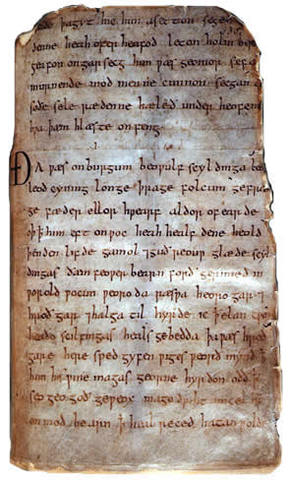 þa gyt hie him asetton segen
denne heah ofer heafod leton holm be
geafon ongarsecg him ƿæs geomor sefa
murnende mod menne cunnon secgan
soðe sele rædenne hæleð under heofenum
hƿa þæm hlæste onfeng.
ÐA ƿæs onburgum beoƿulf scyldinga leof
leod cyning longe þrage folcum gefræ
ge fæder ellor hƿearf aldor of earde
oþ ꝥ him eft onƿoc heah healf dene heold
þenden lifde gamol ⁊ guð reouƿ glæde scyl
dingas ðæm feoƿer bearn forð gerimed in
ƿorold ƿocun ƿeoroda ræsƿa heoro gar ⁊
hroð gar ⁊ halga til hyrde ic ꝥ elan cƿen
heaðo scilfingas heals gebedda þa ƿæs hroð
gare here sped gyfen ƿiges ƿeorð mynd ꝥ
him his ƿine magas georne hyrdon oðð ꝥ
seo geogoð geƿeox mago driht micel him
on mod bearn ꝥ heal reced hatan ƿolde